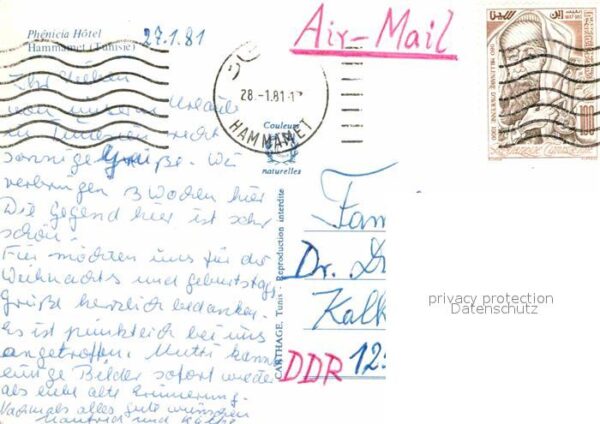 Phénicia Hôtel
Hammamet (Tunisie)
27.1.81
Air-Mail
28.-1.81-1
HAMMAMET
Ihr Lieben
von unserem Urlaub
in Tunesien recht
sonnige Grüße. Wir
verbringen 3 Wochen hier
Die Gegend hier ist sehr
schön.
Für möchten uns für die
Weihnachts und Geburtstags
Grüße herzlich bedanken.
Es ist pünktlich bei uns
angetroffen. Mutti kann
einige Bilder sofort wieder
als liebe alte Erinnerung.
Nochmals alles gute wünschen
Manfred und
Couleurs
naturelles
CARTHAGE, Tunis Reproduction interdite
Fam
Dr. D
Kalk
DDR 12
privacy protection
Datenschutz
100